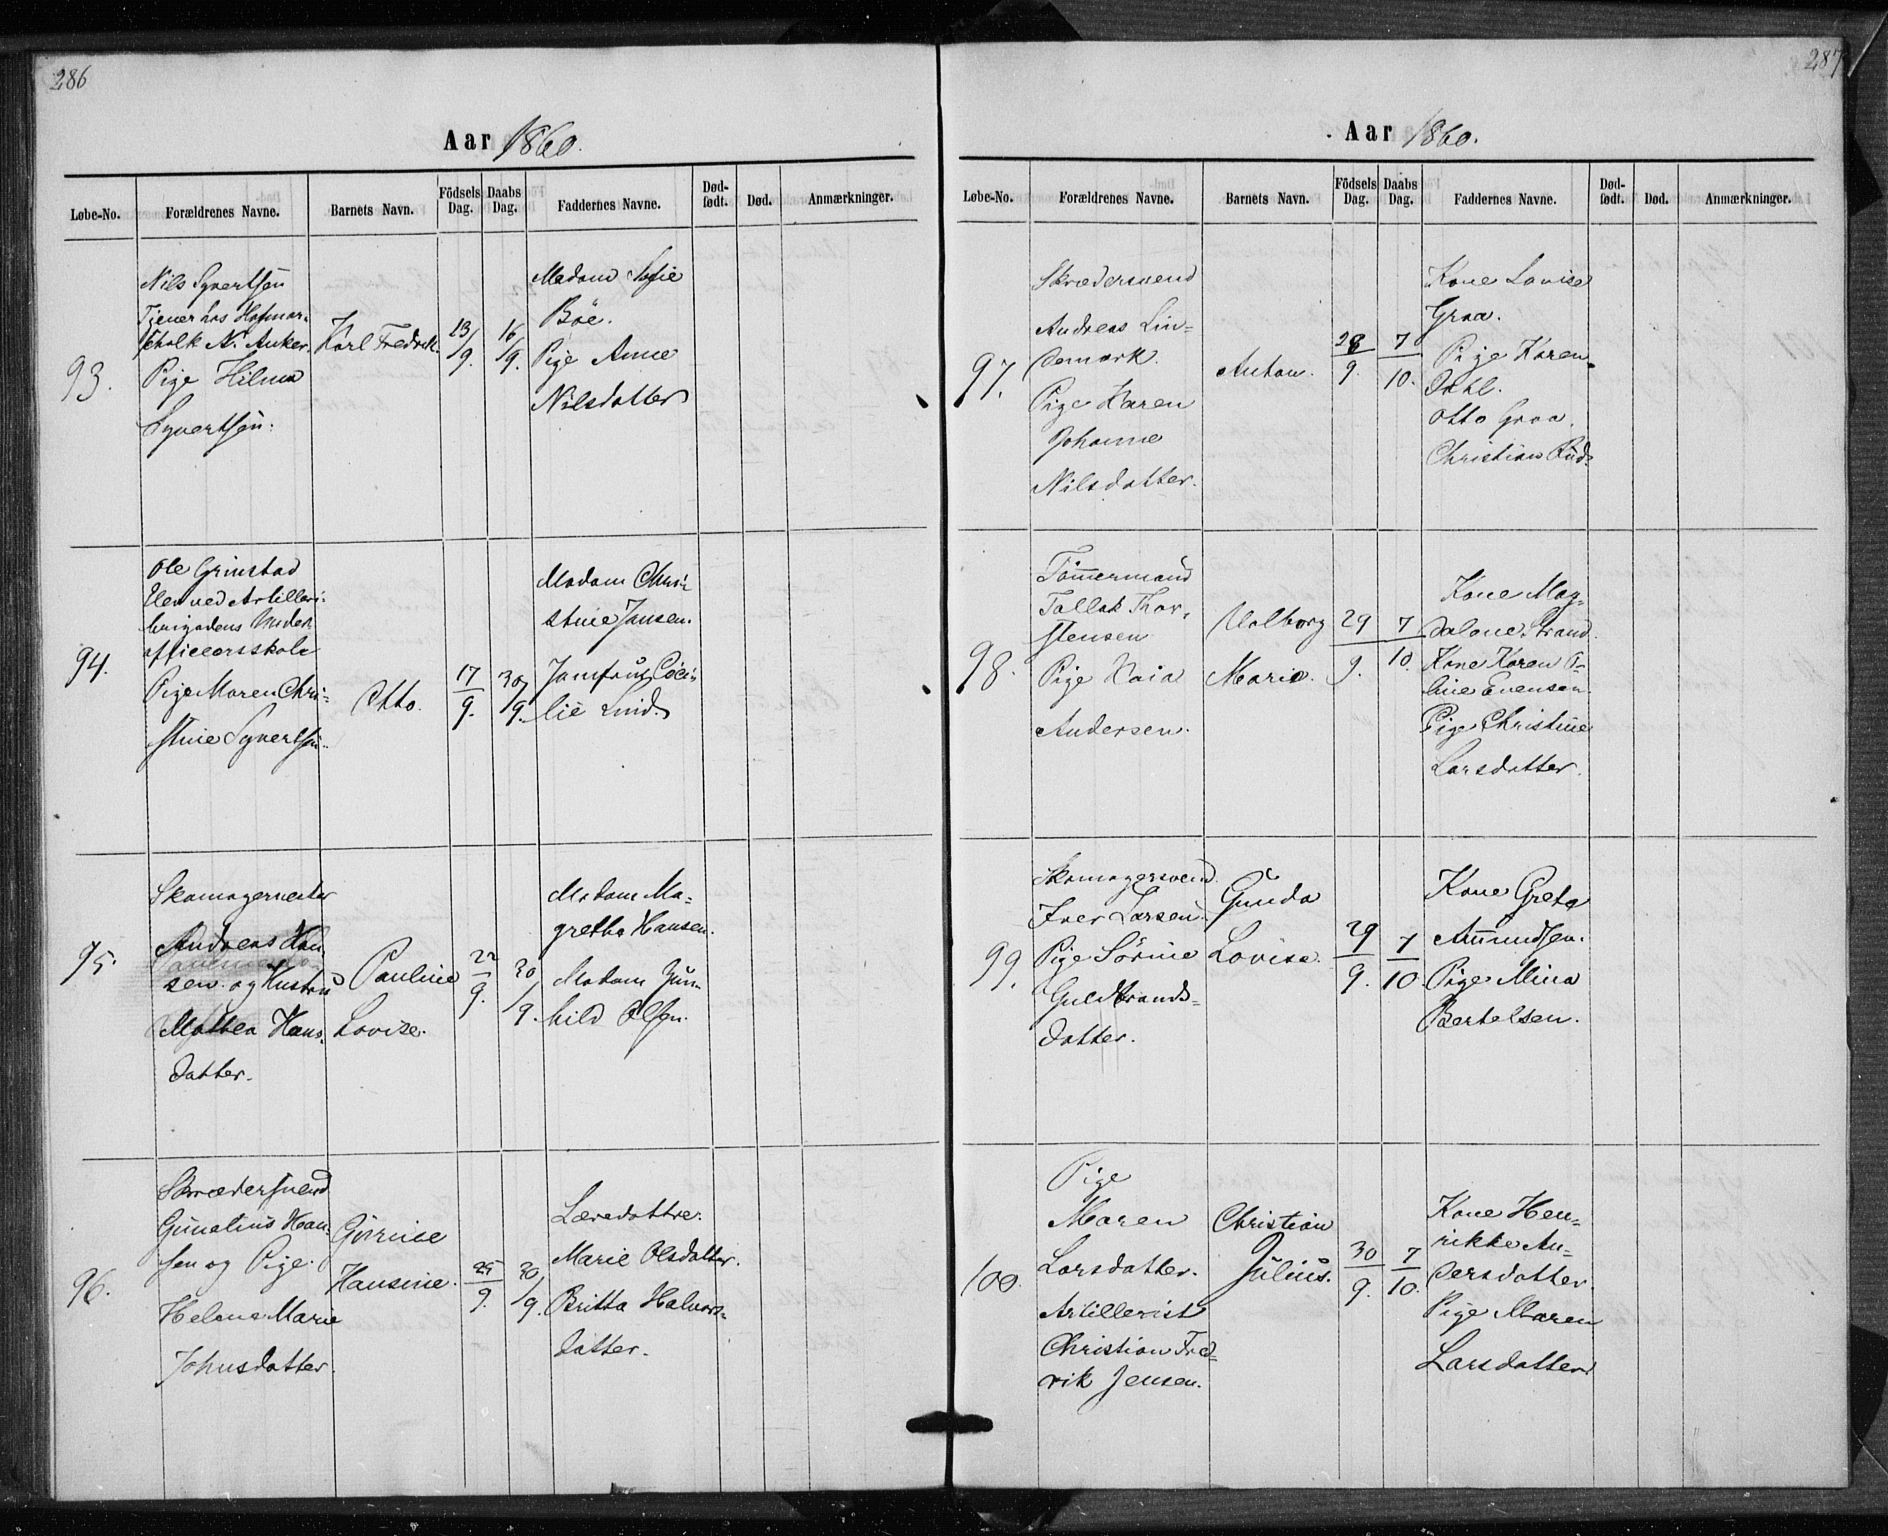 286
Aar 1860.
Løbe-No. Forældrenes Navne. Barnets Navn. Födsels Dag. Daabs Dag. Faddernes Navne. Død-født. Død. Anmærkninger.
93.
Nils Syvertsen
Tjener hos Hofmar-
schalk N. Anker.
Pige Hilma
Syvertsen.
Karl Fredrik.
13/9.
16/9.
Madam Sofie
Böe.
Pige Anne
Nilsdatter
94.
Ole Grinstad
Elev ved Artilleri-
brigadens Under
officeersskole
Pige Maren Chri-
stine Syvertsen.
Otto.
17/9.
30/9.
Madam Chri-
stine Jansen.
Jomfrue Ceci-
lie Lind.
95.
Skomagermester
Andreas Han
sen og Hustru
Mathea Hans-
datter.
Pauline
Lovise.
22/9.
30/9.
Madam Ma-
grethe Hansen.
Madam Gun-
hild Olsen.
96.
Skrædersvend
Hansen og Pige
Helene Marie
Johnsdatter.
Hansine.
25/9.
30/9.
Marie Olsdatter.
Britta Halvors-
datter.
287
Aar 1860.
Løbe-No. Forældrenes Navne. Barnets Navn. Födsels Dag. Daabs Dag. Faddernes Navne. Død-født. Død. Anmærkninger.
97.
Skrædersvend
Andreas Lin-
demark.
Pige Karen
Johanne
Nilsdatter.
Anton.
28/9.
7/10.
Kone Lovise
Graa.
Pige Karen
Dahl.
Otto Graa.
Christian Rud.
98.
Tömmermand
Tallak Thor-
stensen
Pige Kaia
Andersen.
Valborg
Marie.
29/9.
7/10.
Kone Mag-
dalone Strand.
Kone Karen O-
line Evensen.
Pige Christine
Larsdatter.
99.
Skomagersvend
Iver Larsen.
Pige Sörine
Guldbrands-
datter.
Gunda
Lovise.
29/9.
7/10
Kone Grete
Amundsen.
Pige Mina
Bertelsen.
100.
Pige
Maren
Larsdatter.
Artillerist
Christian Fred-
rik Jensen.
Christian
Julius.
30/9.
7/10.
Kone Hen-
rikke An-
dersdatter.
Pige Maren
Larsdatter